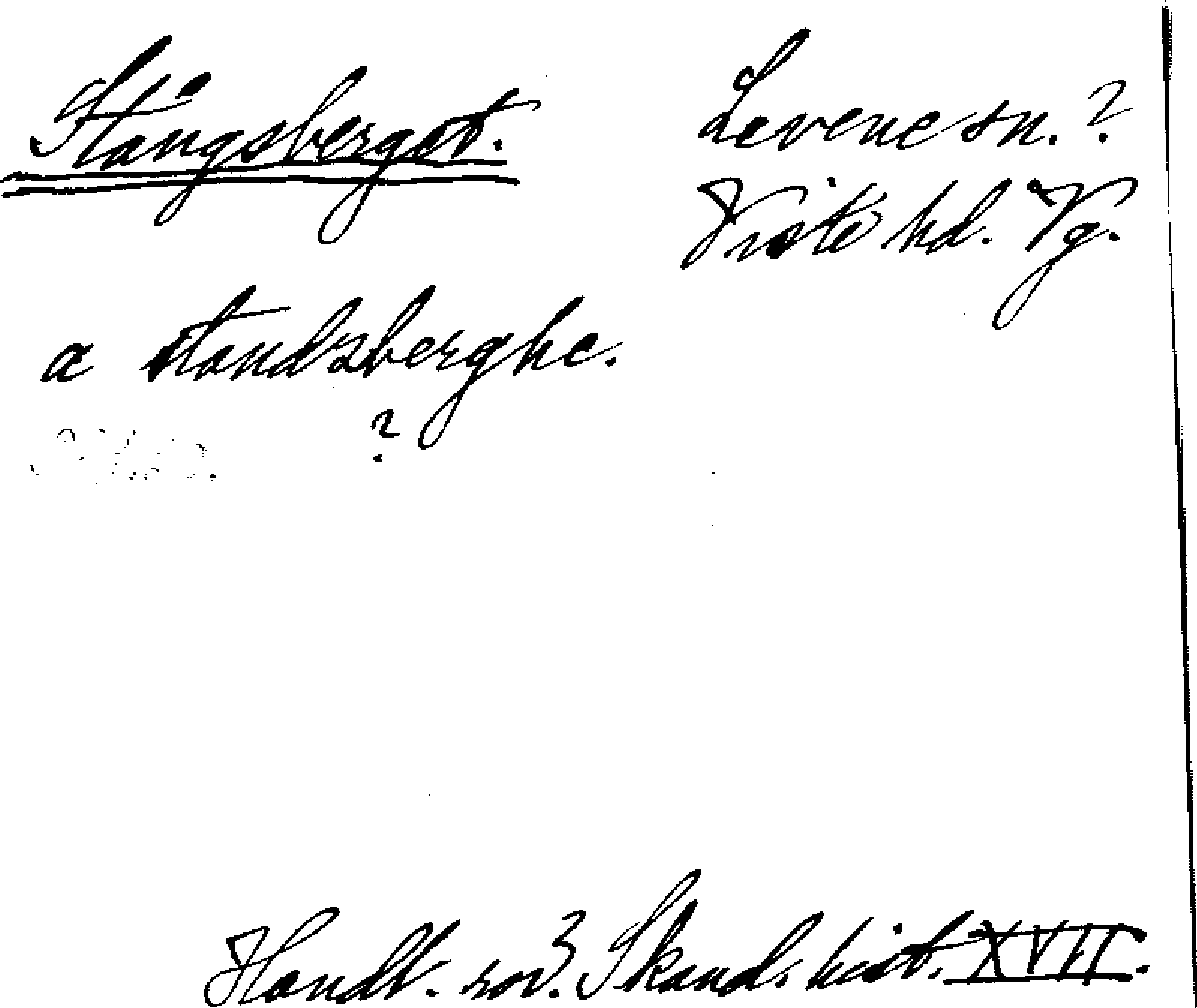 Stångsberget.
Levene sn. ?
Viste hd. Vg.
a standzberghe.
?
Handl. rör. Skand. hist. XVII.